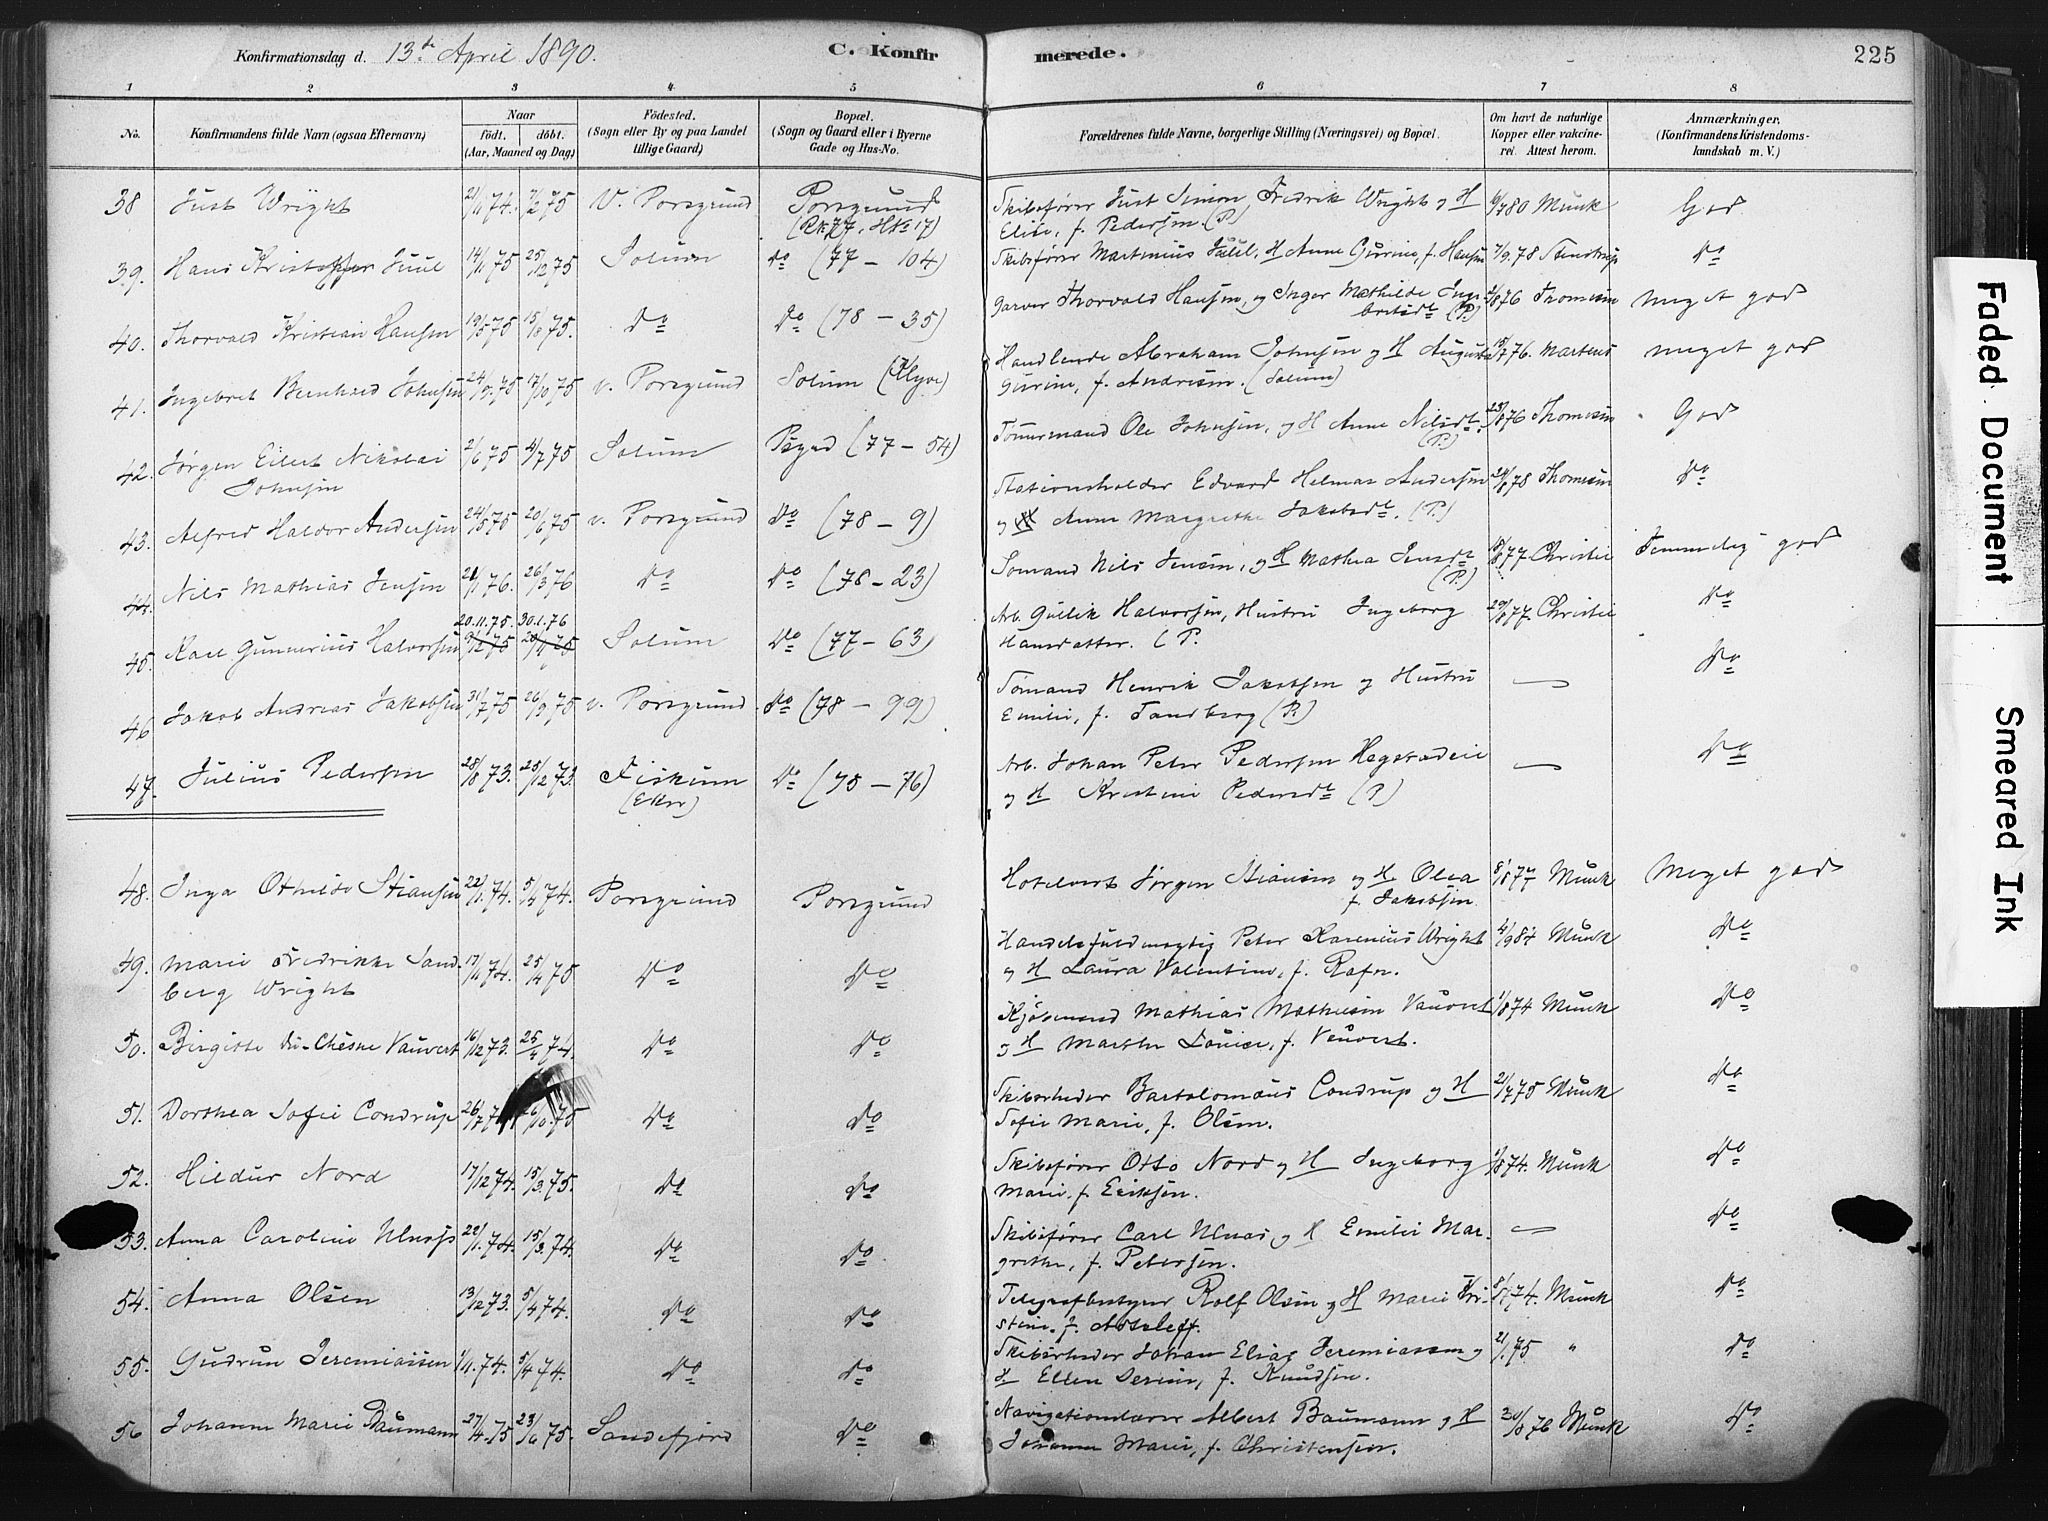 Konfirmationsdag d. 13de April 1890. C. Konfirmerede. 225
1 2 3 4 5 6 7 8
No. Konfirmandens fulde Navn (ogsaa Efternavn) Naar födt. döbt. (Aar, Maaned og Dag) Födested. (Sogn eller By og paa Landet tillige Gaard) Bopæl. (Sogn og Gaard eller i Byerne Gade og Hus-No. Forældrenes fulde Navne, borgerlige Stilling (Næringsvei) og Bopæl. Om havt de naturlige Kopper eller vakcinerei. Attest herom. Anmærkninger. (Konfirmandens Kristendomskundskab m. V.)
38 Just Wright 21/11 74. 7/2 75 V. Porsgrund Porsgrund Skibsfører Just Simon Fredrik Wright og H 6/7 80 Munk God
Elise, f. Pedersen. (P.)
39. Hans Kristoffer Juul 14/11 75 25/12 75 Solum do (77 - 104) Skibsfører Martinius Juul, H Anne Gurine, f. Hansen 7/9. 78 Stenstrup do
40. Thorvald Kristian Hansen 19/5 75 15/8 75. do do (78 - 35) Garver Thorvald Hansen, og Inger Mathilde Ingebritsdt (P.) 876 Thomesen meget god
41. Ingebret Bernhard Johnsen 24/9. 75 17/10 75 v. Porsgrund Solum (Klyve) Handlende Abraham Johnsen og H Augusta 15/7 76. Martens meget god
Gurine, f. Andresen. (Solum)
42. Jørgen Eilert Nikolai 2/6 75 4/7 75 Solum Psgrd (77 - 54) Tømmermand Ole Johnsen, og H Anne Nilsdt. (P.) 23/8 76 Thomesen God
Johnsen
43. Alfred Halvor Andersen 24/5 75 20/6 75 v. Porsgrund do (78 - 9) Stationsholder Edvard Helmar Andersen 24/8 78 Thomesen do
og H Anne Margrethe Jakobsdt. (P.)
44. Nils Mathias Jensen 21/1 76. 26/3 76 do do (78 - 23) Sømand Nils Jensen, og H Mathea Jensdt (P.) 877 Christie Temmelig god
20.11.75. 30.1.76
45. Karl Gunnerius Halvorsen 9/12 75 Solum do (77 - 63) Arb. Gullik Halvorsen, Hustru Ingeborg 29/8 77. Christie do
Hansdatter. (P.
46 Jakob Andreas Jakobsen 31/7 75 26/9 75 v. Porsgrund do (78 - 99) Sømand Henrik Jakobsen og Hustru — do
Emilie, f. Sandberg (P.)
47. Julius Pedersen 28/8 73. 25/12 73. Fiskum do (75 - 76) Arb. Johan Peter Pedersen — do
(Eker) og H Kristine Pedersdt (P.)
48. Inga Othilde Stiansen 22/1. 74. 5/4 74. Porsgrund Porsgrund Hotelvert Jørgen Stiansen og H. Olea 877 Munk Meget god
f. Jakobsen
49. Marie Fredrikke Sand- 17/11 74. 25/4 75 do do Handelsfuldmægtig Peter Karenius Wright 4/9 84 Munk do
berg Wright og H Laura Valentine, f. Rafn.
50. Birgitte du-Chesne Vauvert 16/12 73. 25/4 74. do do Kjøbmand Mathias Mathiesen Vauvert 1/8 74 Munk do
og H Marthe Louise, f. Vauvert.
51. Dorthea Sofie Condrup 26/7 26/10. 75 do do Skibsrheder Bartolomæus Condrup og H 21/7 75 Munk do
Sofie Marie, f. Olsen.
52. Hildur Nord 17/12 74. 15/3. 75. do do Skibsfører Otto Nord og H Ingeborg 874. Munk do
Marie, f. Eriksen.
53. Anna Caroline 22/1. 74. 15/3. 74. do do Skibsfører Carl og H Emilie Mar- — do
grethe, f. Petersen.
54. Anna Olsen 13/12 73. 5/4 74. do do Telegrafbestyrer Rolf Olsen og H Marie Kri- 74. Munk do
stine, f.
55. Gudrun Jeremiassen 1/1. 74. 5/4 74. do do Skibsrheder Johan Elias Jeremiassen og 21/1. 75 " do
H. Ellen Serine, f. Knudsen.
56 Johanne Marie Baumann 27/4. 75 23/6 75. Sandefjord do Navigationslærer Albert Baumann og H 30/8 76 Munk do
Johanne Marie, f. Christensen.
Faded Document Smeared Ink